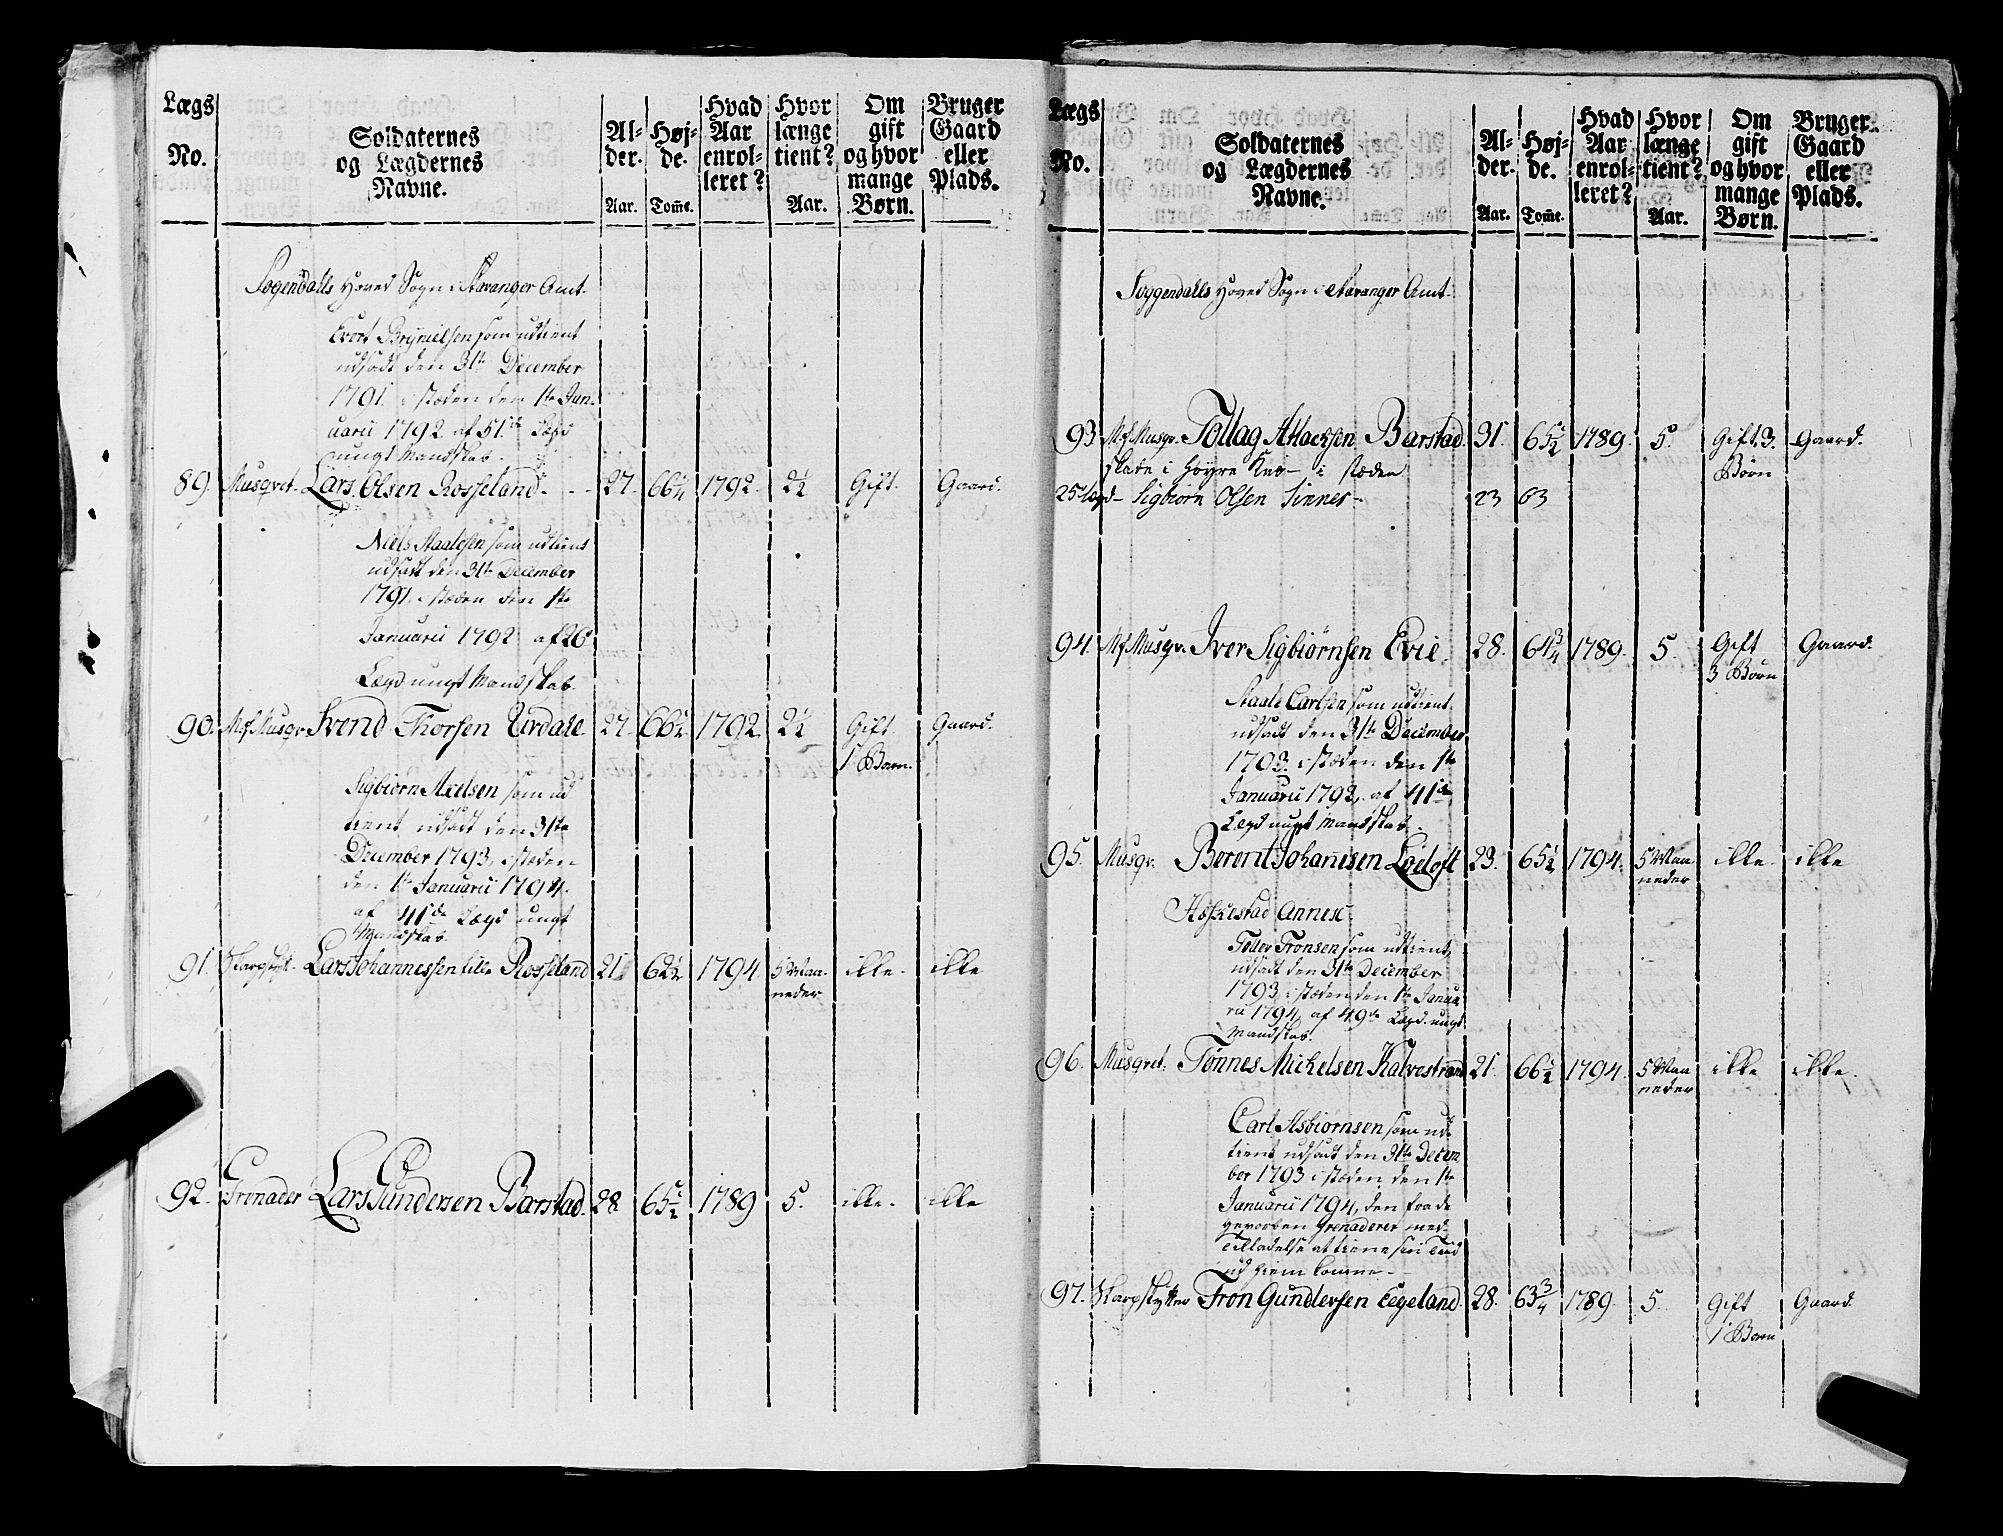 Lægs No.
Soldaternes og Lægdernes Navne.
Al-der. Aar.
Høj-de. Tome.
Hvad Aar enrol-leret?
Hvor længe tient? Aar.
Om gift og hvor mange Børn.
Bruger Gaard eller Plads.
Sogendalls Hoved Sogn i Stavanger Amt.
Evert Brynielsen som udtient
udsadt den 31te December
1791. i stæden den 1te Jan-
uarii 1792 af 51de Lægd
ungt Mandskab.
89. Musqvet. Lars Olsen Rosseland. 27. 66 1/4 1792. 2 1/2 Gift. Gaard.
Niels Staalesen som udtient
udsadt den 31te December
1791. i stæden den 1te
Januarii 1792 af 26
Lægd ungt Mandskab.
90. Mf. Musqv. Svend Thorsen Urdale 27. 66 1/2 1792. 2 1/2 Gift Gaard.
1 Barn.
Sigbiørn Nielsen som ud
tient udsadt den 31te
December 1793, i stæden
den 1te Januarii 1794.
af 41de Lægd ungt
Mandskab.
91. Skarpsk. Lars Johannessen lille Rosseland 21 62 1/2 1794 5 Maa- ikke. ikke
neder
92. Grenader Lars Gundersen Barstad. 28 65 1/2 1789 5. ikke. ikke
Lægs No.
Soldaternes og Lægdernes Navne.
Al-der. Aar.
Høj-de. Tome.
Hvad Aar enrol-leret?
Hvor længe tient? Aar.
Om gift og hvor mange Børn.
Bruger Gaard eller Plads.
Soggendalls Hoved Sogn i Stavanger Amt.
93 Mf. Musqv. Tollag Atlacksen Barstad. 31. 65 1/2 1789. 5. Gift. 3. Gaard.
skade i høyre Knæ i stæden Børn
25 Lægd Sigbiørn Olsen Sinnes 23 63
94. Mf Musqv. Iver Sigbiørnsen Evie. 28. 64 3/4 1789. 5. Gift Gaard.
3 Børn
Staale Carlsen som udtient
udsadt den 31te December
1793. i stæden den 1te
Januarii 1792, af 41de
Lægd ungt Mandskab.
95. Musqv. Berent Johannesen Løeloft 23. 65 1/2 1794. 5 Maa ikke. ikke
neder
Heskestad Annex.
Tollev Tronsen som udtient,
udsadt den 31te December
1793 i stæden den 1te Janua-
rii 1794 af 49de Lægd ungt
Mandskab.
96. Musqvet. Tønnes Michelsen Kalvestrand 21. 66 1/2 1794. 5 Maa ikke ikke.
neder
Carl Asbiørnsen som ud-
tient udsadt den 31te Decem
ber 1793 i stæden den 1te
Januarii 1794, den fra de
gevorben Grenaderer med
Tilladelse at tiene sin Tiid
ud hiem komne
97. Skarpskytter Tron Gundersen Eegeland. 28. 63 3/4 1789. 5. Gift Gaard.
1 Barn